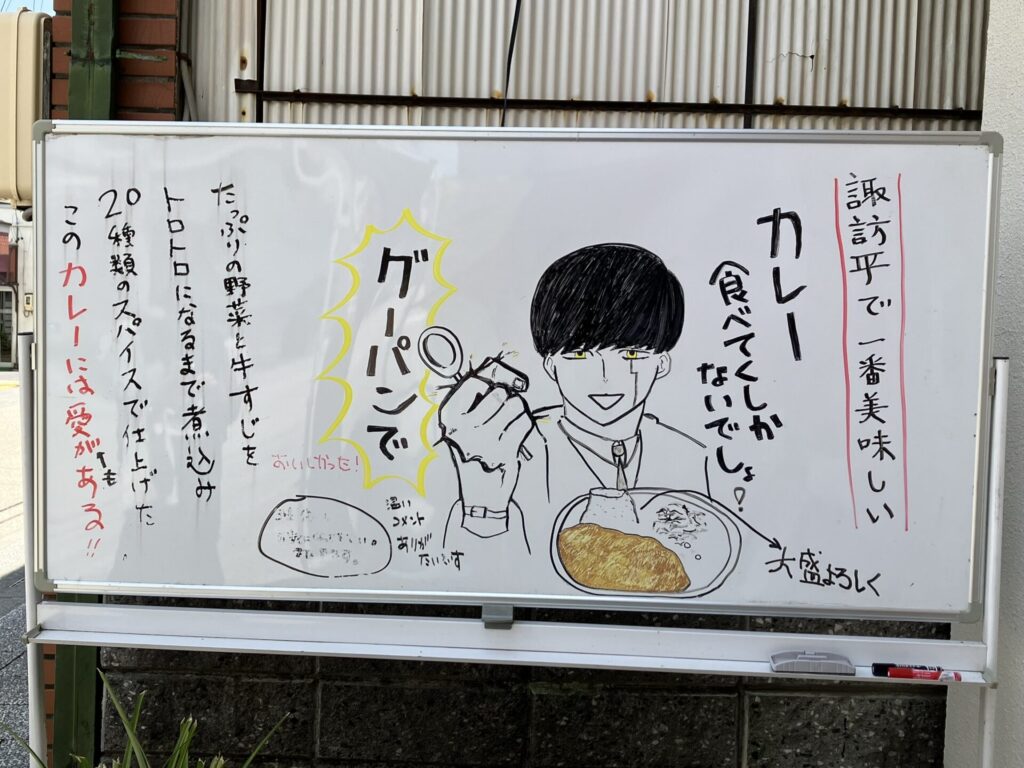 諏訪平で一番美味しい
カレー
食べてくしか
ないでしょ!
グーパンで
大盛よろしく
たっぷりの野菜と牛すじを
トロトロになるまで煮込み
20種類のスパイスで仕上げた
このカレーには愛がある!!
↑も
おいしかった!
温い
コメント
ありが
たいです